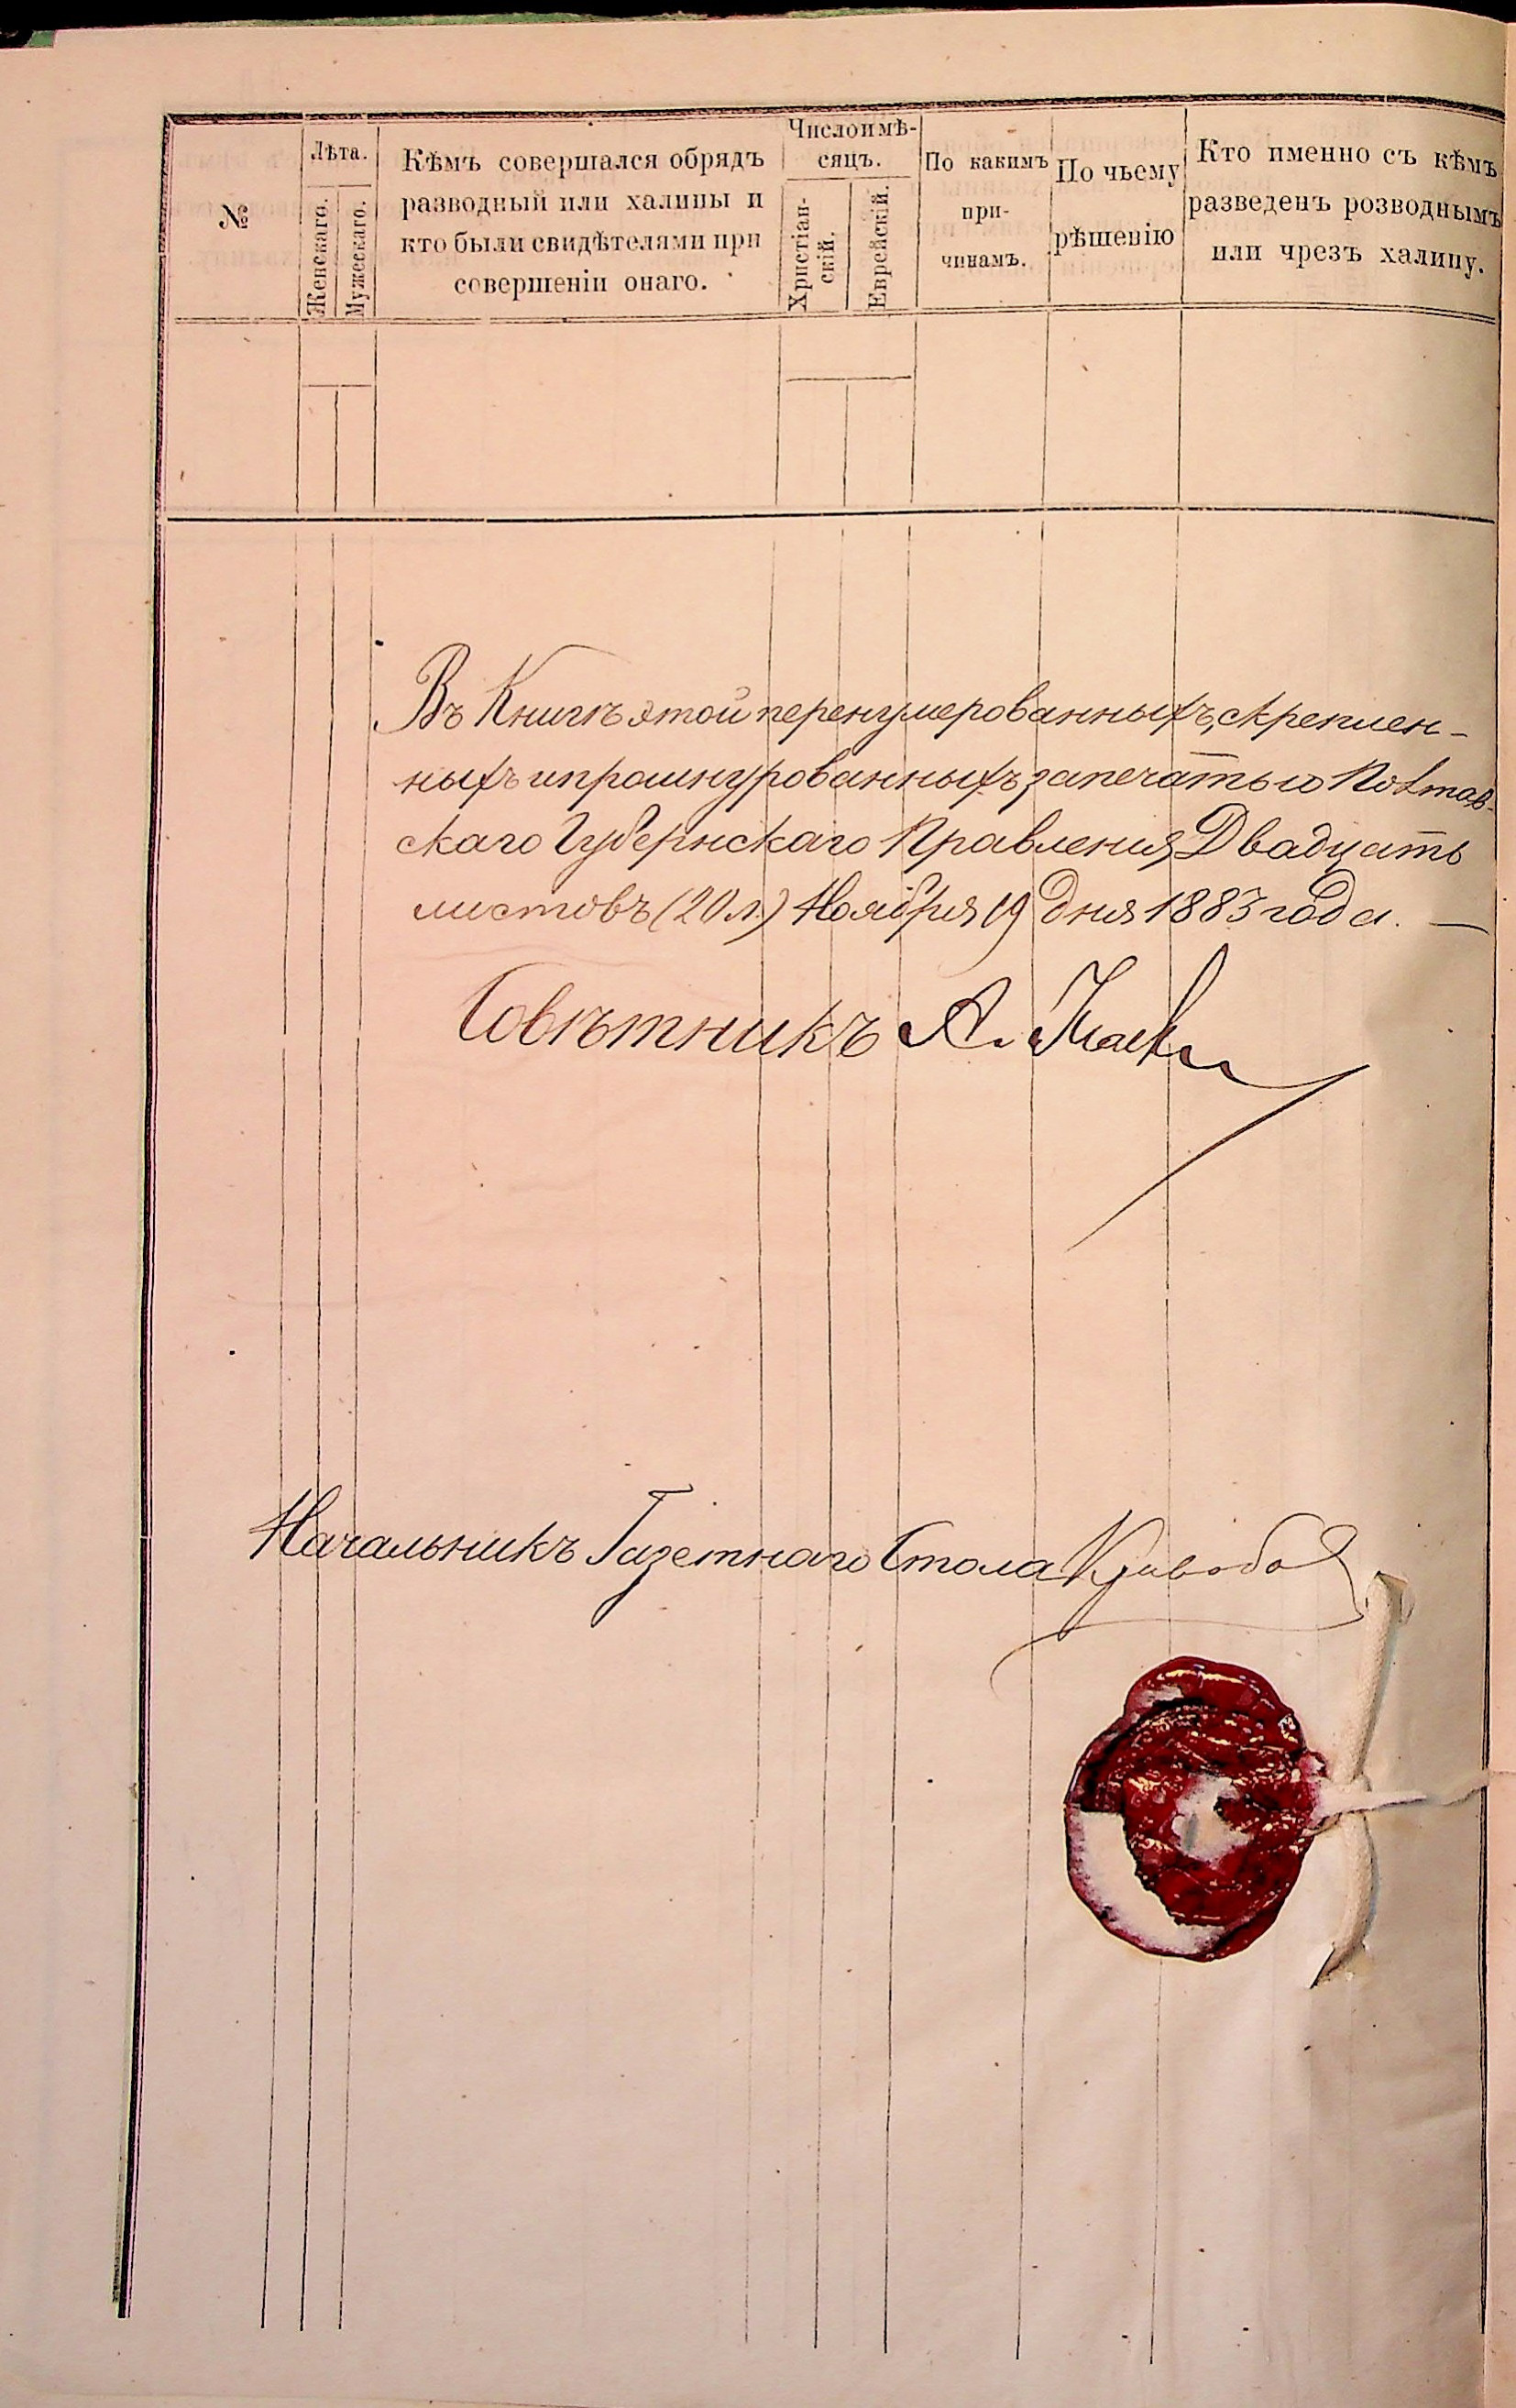 №
Лѣта.
Женскаго.
Мужескаго.
Кѣмъ совершался обрядъ
разводный или халицы и
кто были свидѣтелями при
совершеніи онаго.
Число и мѣ-
сяцъ.
Христіан-
скій.
Еврейскій.
По какимъ
при-
чинамъ.
По чьему
рѣшенію
Кто именно съ кѣмъ
разведенъ розводнымъ
или чрезъ халицу.
Въ Книгѣ этой перенумерованныхъ, скреплен-
ныхъ и прошнурованныхъ за печатью Полтав-
скаго Губернскаго Правленія, Двадцать
листовъ (20 л.) Ноября 19 дня 1883 года. —
Совѣтникъ А.
Начальникъ Газетнаго Стола